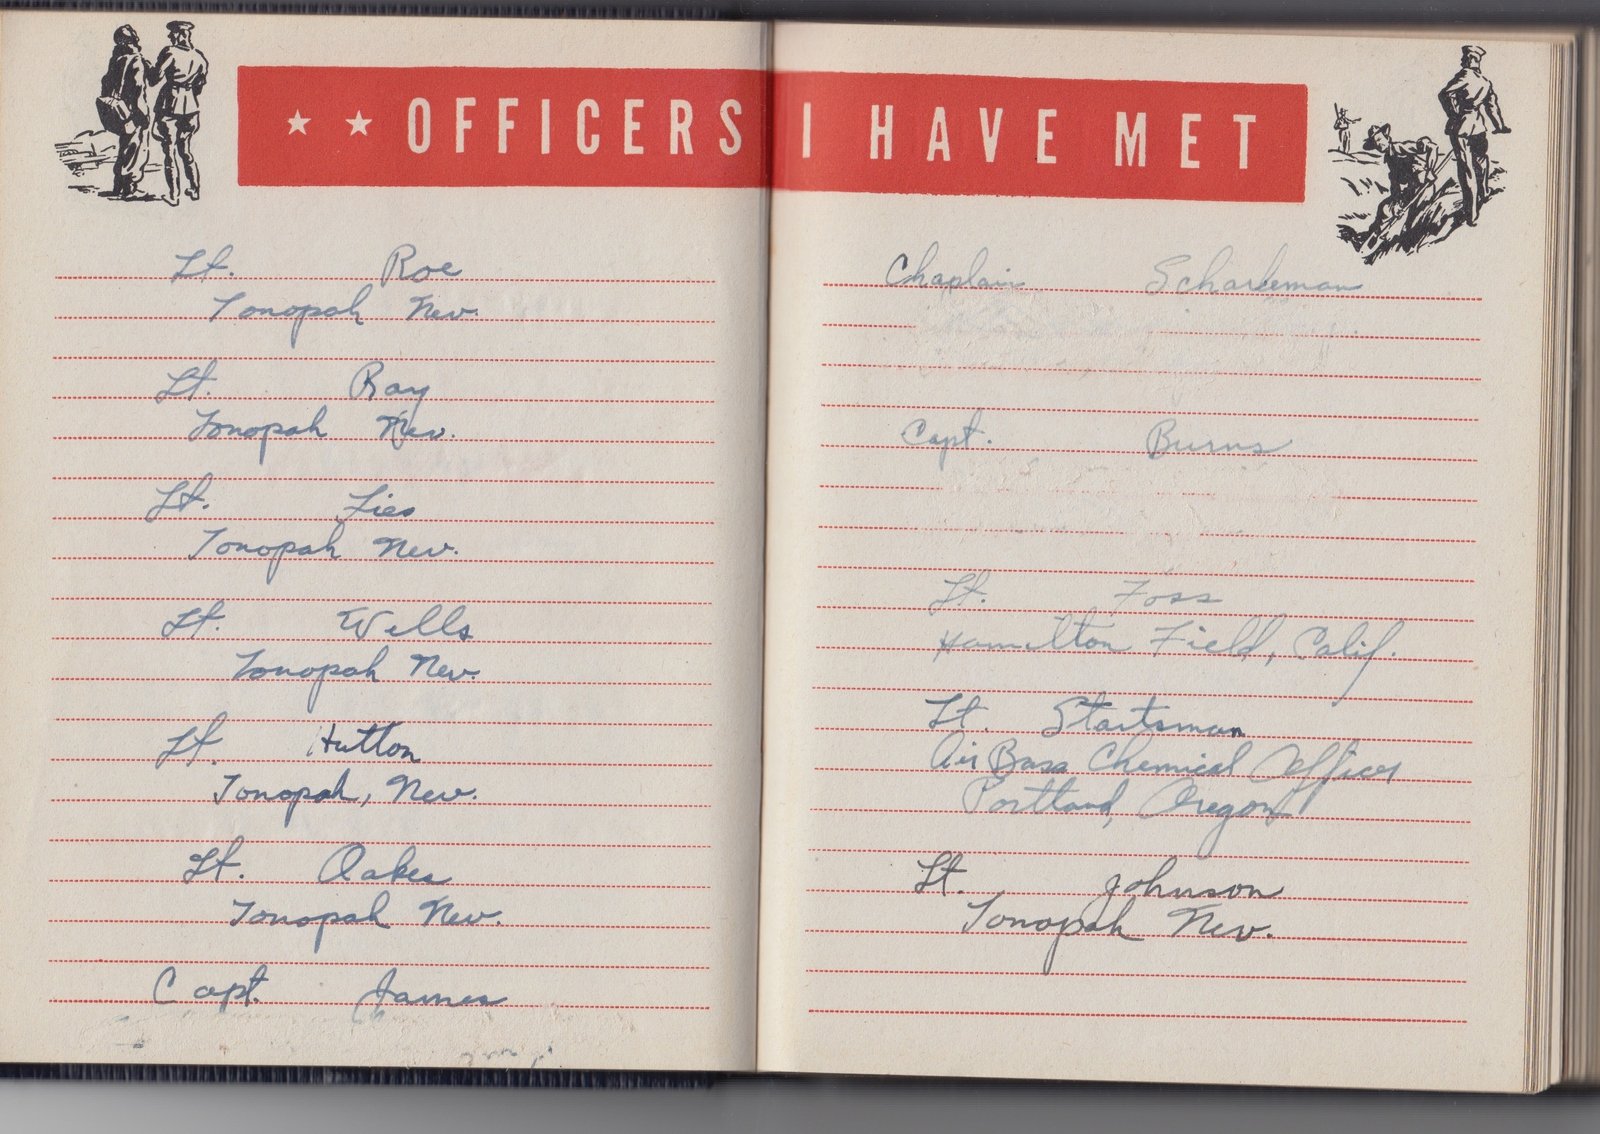 ★ ★ OFFICERS I HAVE MET
Lt. Roe
Tonopah Nev.
Lt. Ray
Tonopah Nev.
Lt. Lies
Tonopah Nev.
Lt. Wells
Tonopah Nev.
Lt. Hutton
Tonopah, Nev.
Lt. Oakes
Tonopah Nev.
Capt. James
Chaplain
Capt. Burns
Lt. Foss
Hamilton Field, Calif.
Lt. Startsman
Air Base Chemical Officer
Portland, Oregon
Lt. Johnson
Tonopah Nev.